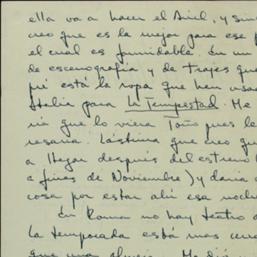 ella va a hacer el Ariel, y
creo que es la mejor para ese
el cual es formidable. En un
de escenografía y de trajes que
está la ropa que han usado
Italia para La Tempestad. Me
ría que lo viera Toño pues le
resaría. Lástima que creo que
a llegar después del estreno
a fines de Noviembre) y daría
cosa por estar ahí esa noche
En Roma no hay teatro
La temporada está mas
que una almeja. Me